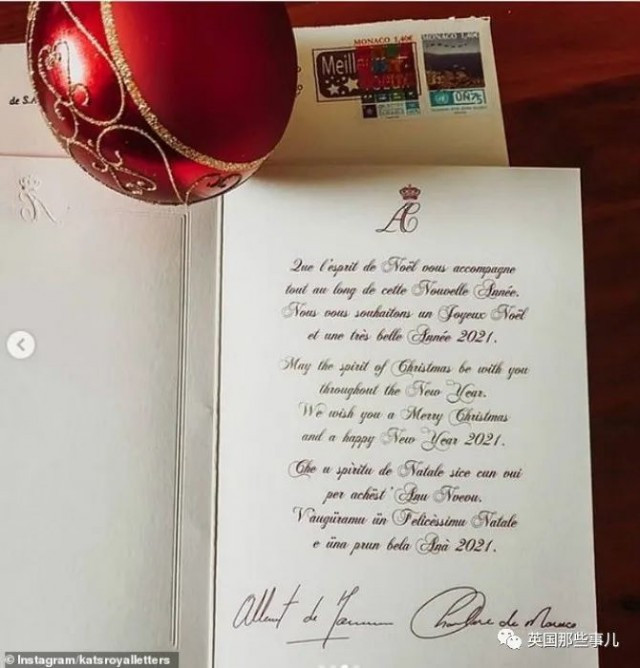 de S.A
Meill
MONACO 1,40€
MONACO 1,40€
UN75
AC
Que l'esprit de Noël vous accompagne
tout au long de cette Nouvelle Année.
Nous vous souhaitons un Joyeux Noël
et une très belle Année 2021.
May the spirit of Christmas be with you
throughout the New Year.
We wish you a Merry Christmas
and a happy New Year 2021.
Che u spiritu de Natale sice cun vui
per achëst' Anu Noeou.
V'augüramu ün Felicèssimu Natale
e üna prun bela Anà 2021.
Albert de Monaco
Charlene de Monaco
Instagram/katsroyalletters
英国那些事儿